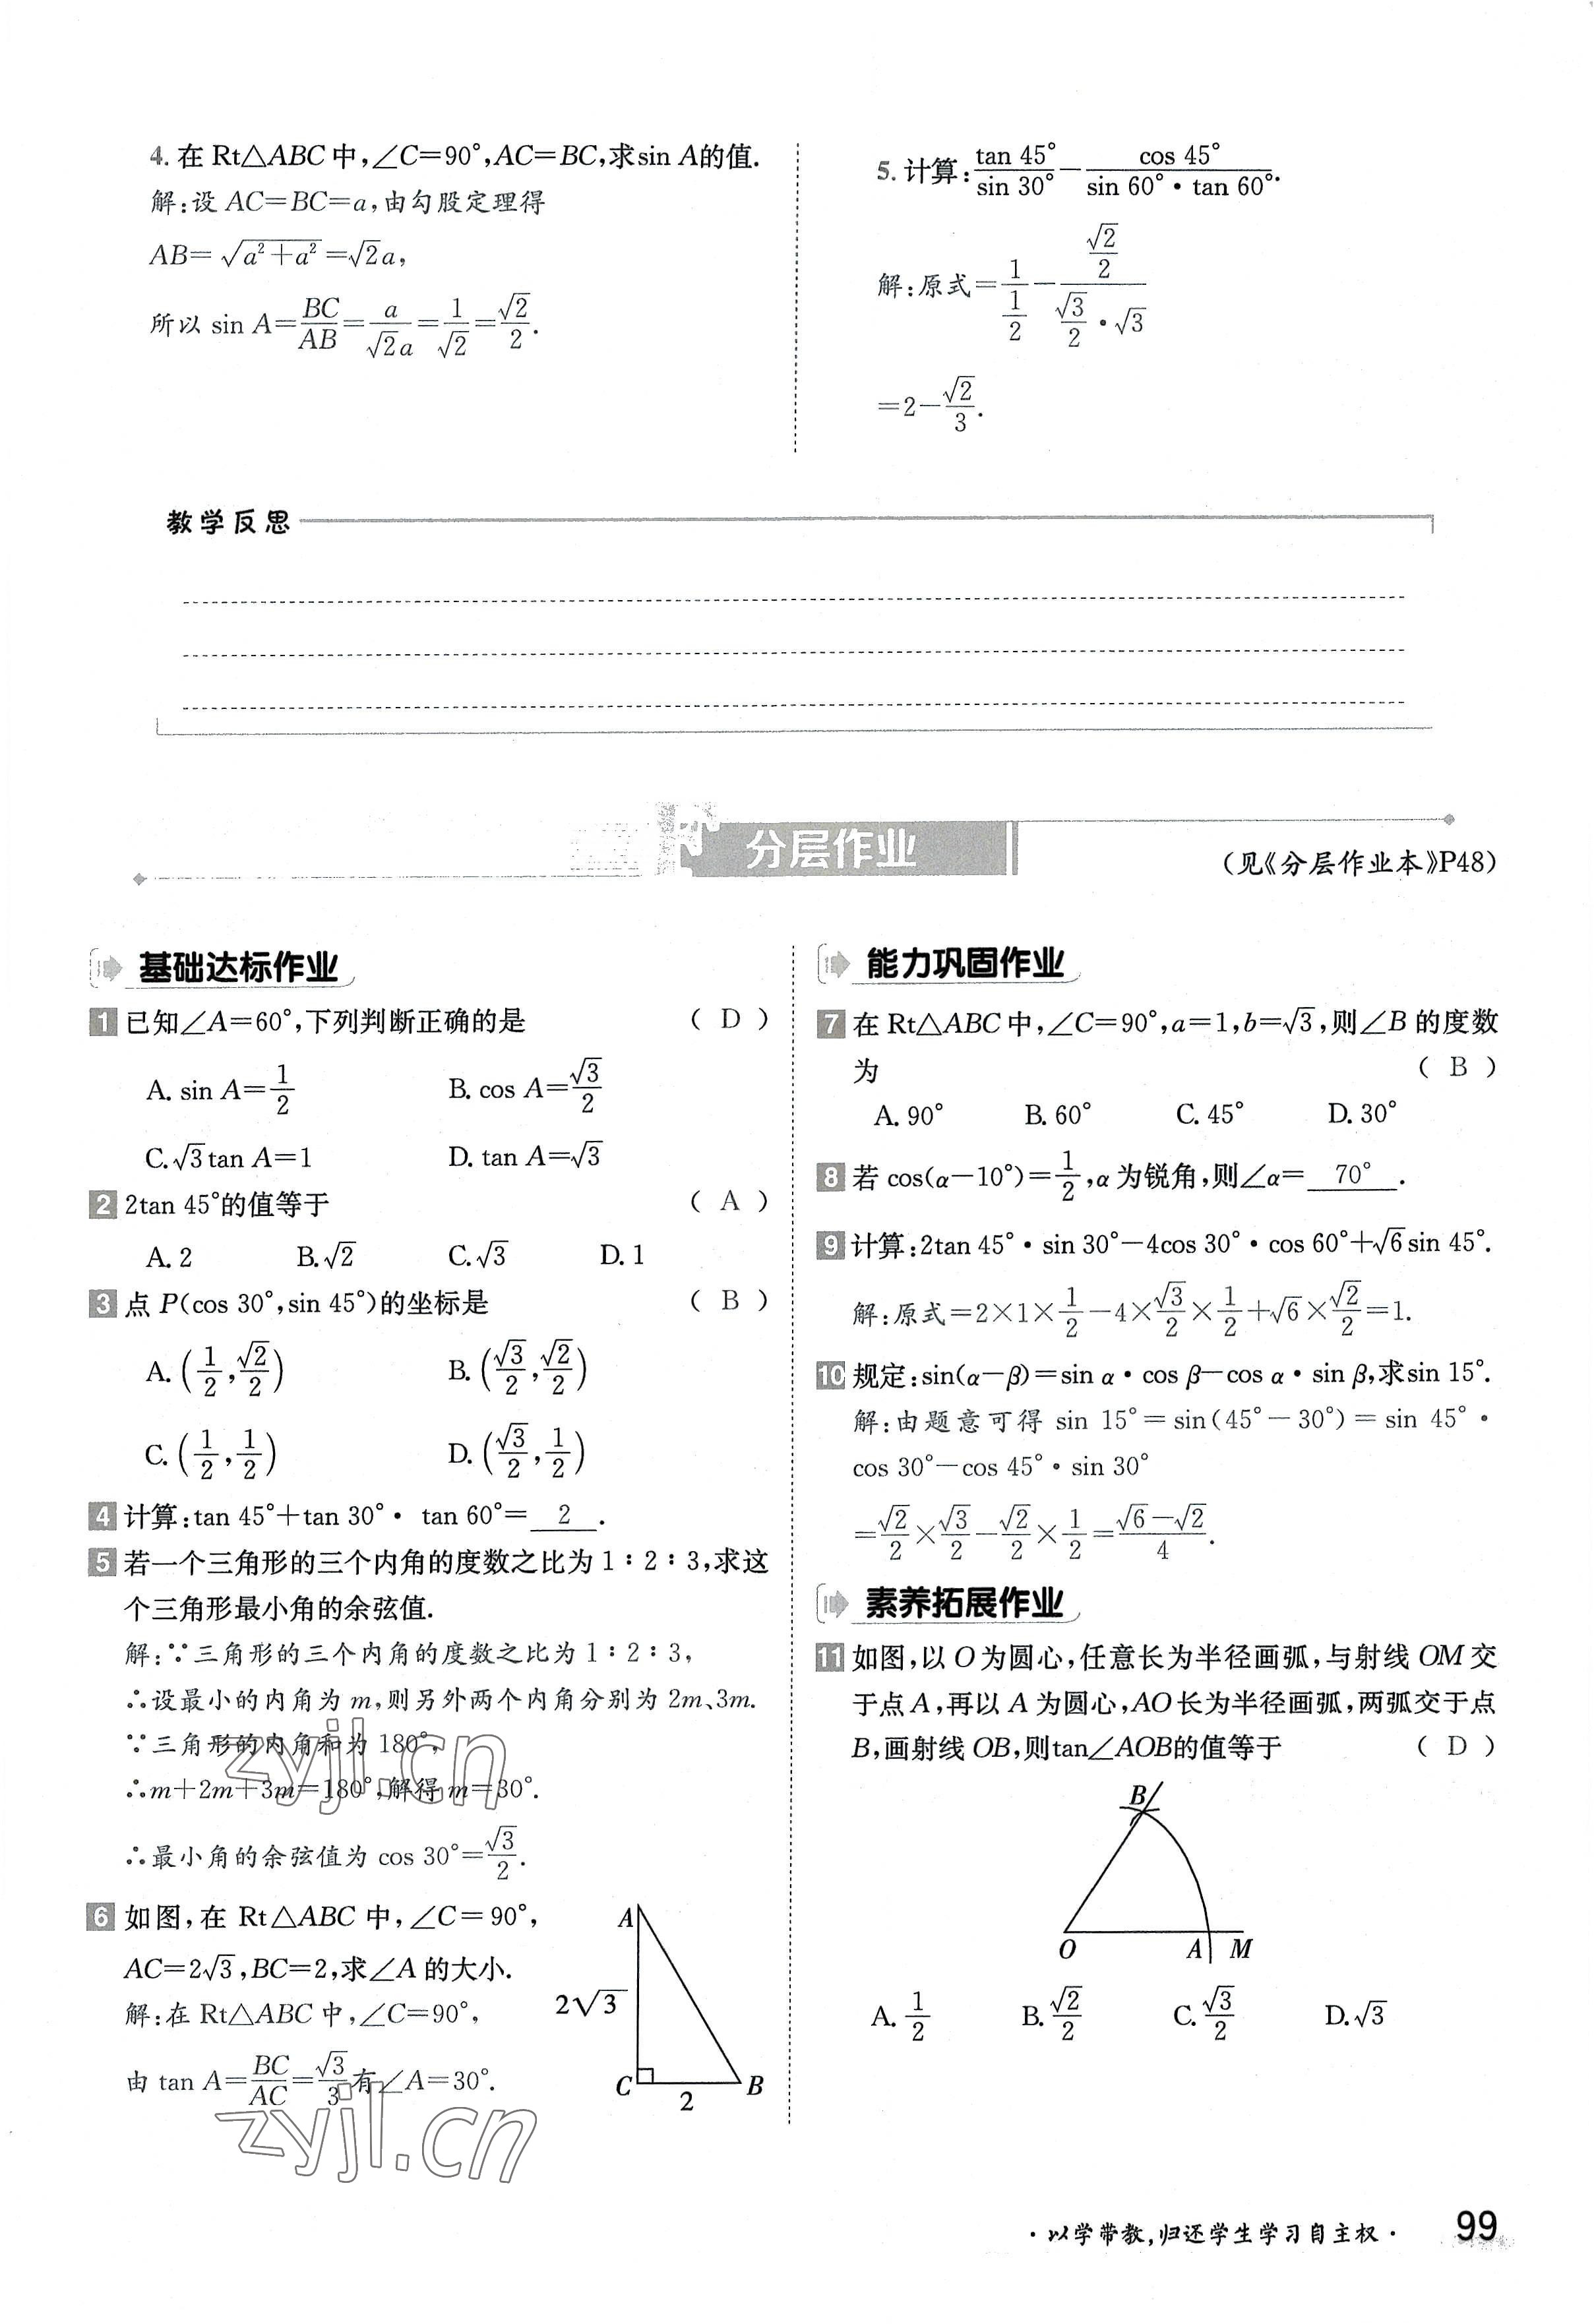 4. 在 Rt△ABC 中,∠C=90°,AC=BC,求sin A的值.
解:设 AC=BC=a,由勾股定理得
AB=√(a²+a²)=√2a,
所以 sin A=BC/AB=a/(√2a)=1/√2=√2/2.
5. 计算:tan 45°/sin 30°-cos 45°/(sin 60°·tan 60°).
解:原式=1/(1/2)-(√2/2)/(√3/2·√3)
=2-√2/3.
教学反思
分层作业
(见《分层作业本》P48)
基础达标作业
1 已知∠A=60°,下列判断正确的是 ( D )
A. sin A=1/2 B. cos A=√3/2
C. √3tan A=1 D. tan A=√3
2 2tan 45°的值等于 ( A )
A. 2 B. √2 C. √3 D. 1
3 点 P(cos 30°,sin 45°)的坐标是 ( B )
A. (1/2,√2/2) B. (√3/2,√2/2)
C. (1/2,1/2) D. (√3/2,1/2)
4 计算:tan 45°+tan 30°· tan 60°= 2 .
5 若一个三角形的三个内角的度数之比为1:2:3,求这
个三角形最小角的余弦值.
解:∵三角形的三个内角的度数之比为1:2:3,
∴设最小的内角为 m,则另外两个内角分别为 2m、3m.
∵三角形的内角和为 180°,
∴m+2m+3m=180°,解得 m=30°.
∴最小角的余弦值为 cos 30°=√3/2.
6 如图,在 Rt△ABC 中,∠C=90°,
AC=2√3,BC=2,求∠A 的大小.
解:在 Rt△ABC 中,∠C=90°,
由 tan A=BC/AC=√3/3有∠A=30°.
A
2√3
C
2
B
zyjl.cn
zyjl.cn
能力巩固作业
7 在 Rt△ABC 中,∠C=90°,a=1,b=√3,则∠B 的度数
为 ( B )
A. 90° B. 60° C. 45° D. 30°
8 若 cos(α-10°)=1/2,α 为锐角,则∠α= 70° .
9 计算:2tan 45°·sin 30°-4cos 30°·cos 60°+√6sin 45°.
解:原式=2×1×1/2-4×√3/2×1/2+√6×√2/2=1.
10 规定:sin(α-β)=sin α·cos β-cos α·sin β,求sin 15°.
解:由题意可得 sin 15°=sin(45°-30°)=sin 45°·
cos 30°-cos 45°·sin 30°
=√2/2×√3/2-√2/2×1/2=(√6-√2)/4.
素养拓展作业
11 如图,以 O 为圆心,任意长为半径画弧,与射线 OM 交
于点 A,再以 A 为圆心,AO长为半径画弧,两弧交于点
B,画射线 OB,则tan∠AOB的值等于 ( D )
B
O
A
M
A. 1/2 B. √2/2 C. √3/2 D. √3
·以学带教,归还学生学习自主权·
99